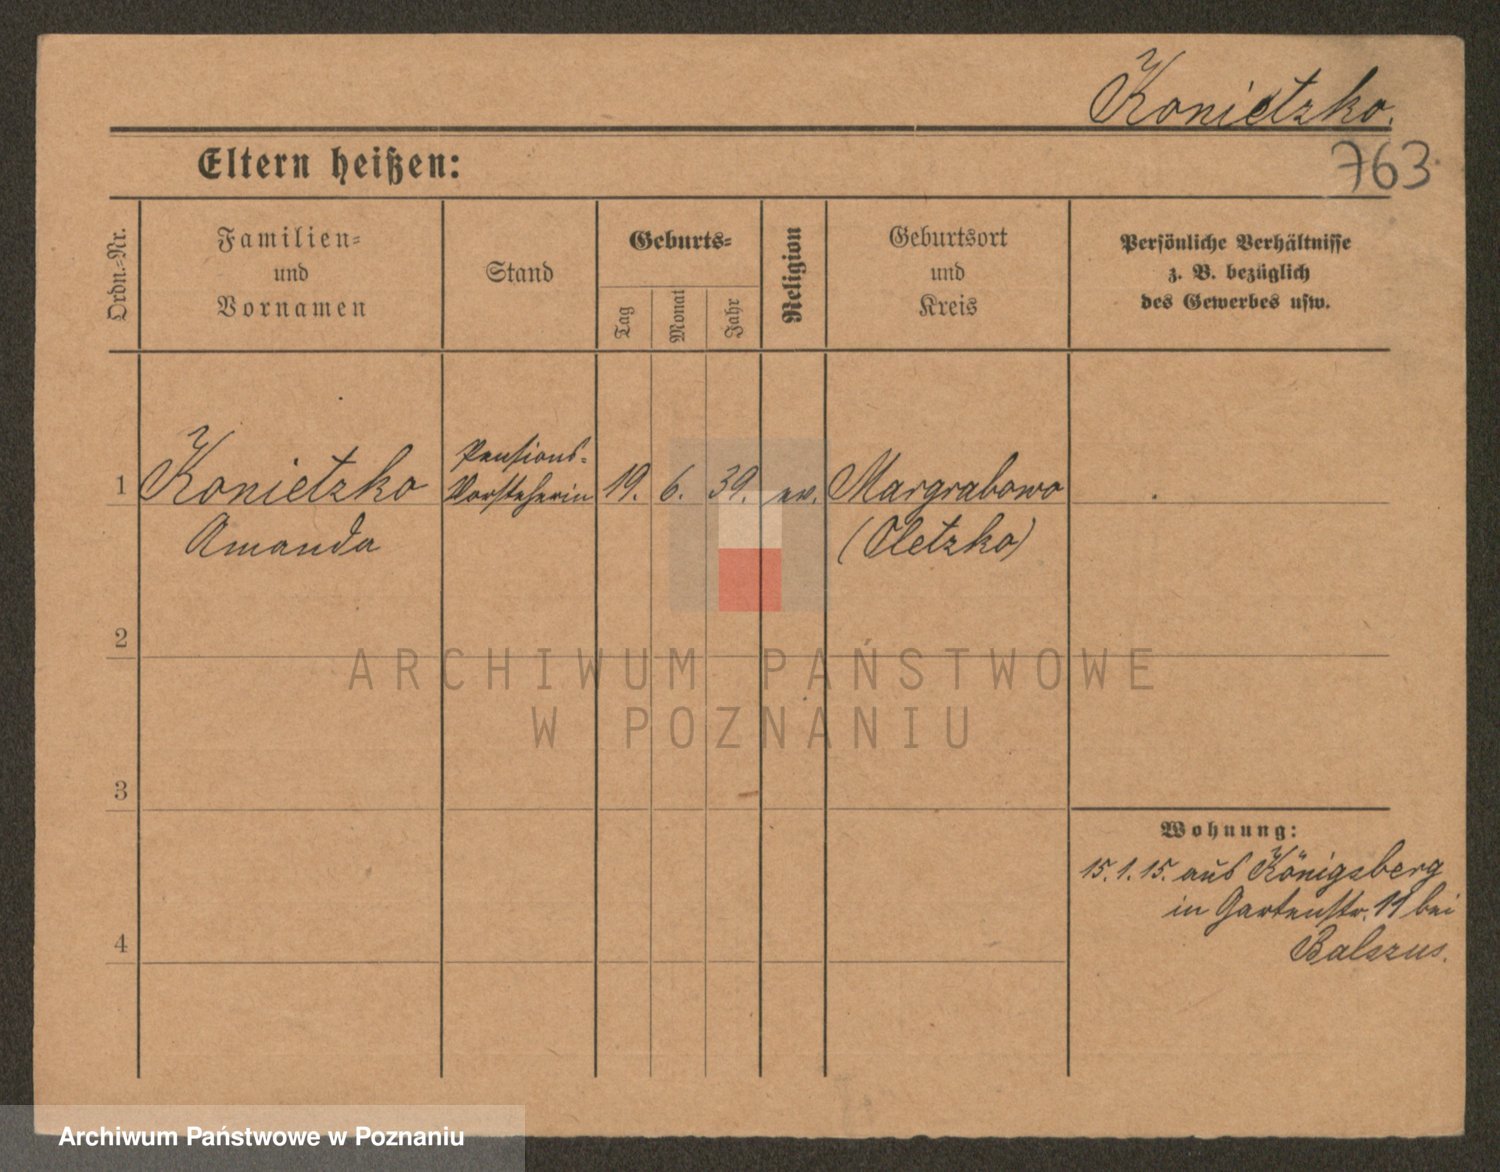 Konietzko.
763
Eltern heißen:
Ordn.-Nr.
Familien-
und
Vornamen
Stand
Geburts-
Tag
Monat
Jahr
Religion
Geburtsort
und
Kreis
Persönliche Verhältnisse
z. B. bezüglich
des Gewerbes usw.
1
Konietzko
Amanda
Pensions-
Vorsteherin
19. 6. 39. ev.
Margrabowo
(Oletzko)
2
3
4
Wohnung:
15. 1. 15. aus Königsberg
in Gartenstr. 11 bei
Balszus.
ARCHIWUM PAŃSTWOWE
W POZNANIU
Archiwum Państwowe w Poznaniu